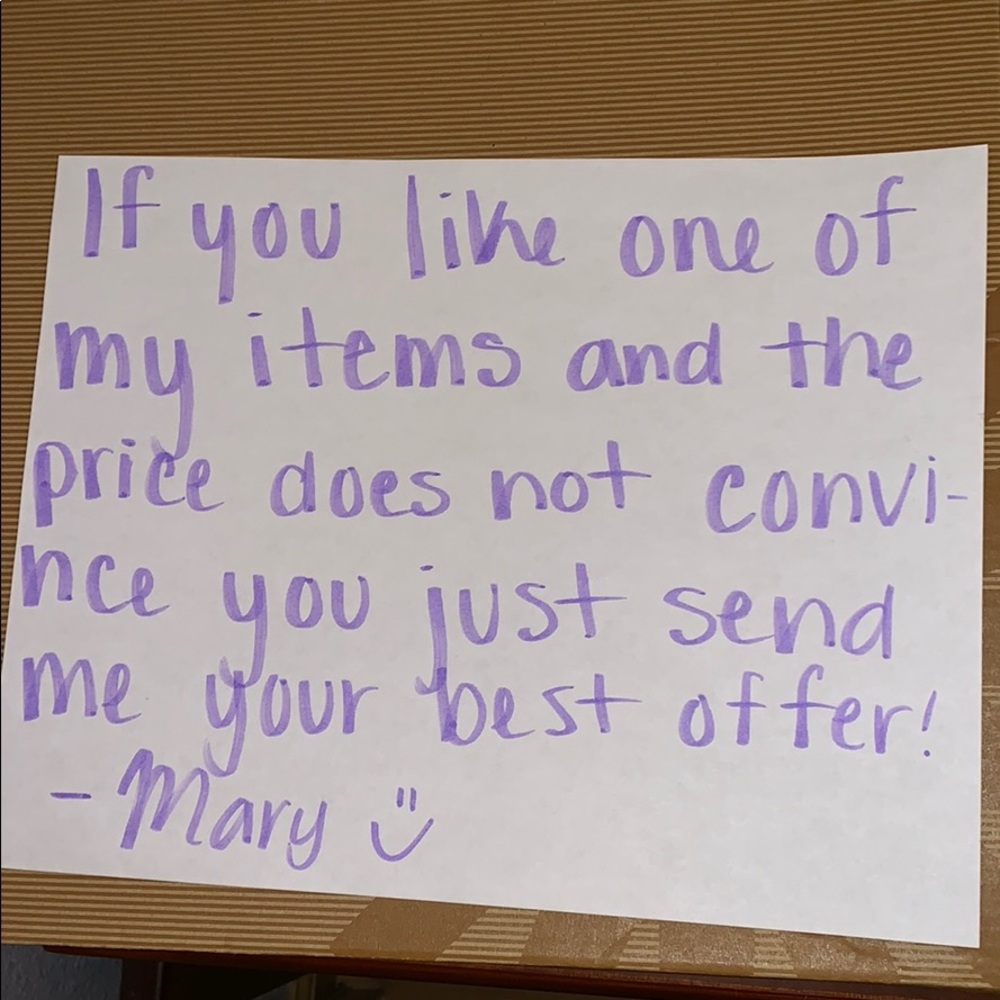 If you like one of
my items and the
price does not convi-
nce you just send
me your best offer!
- Mary